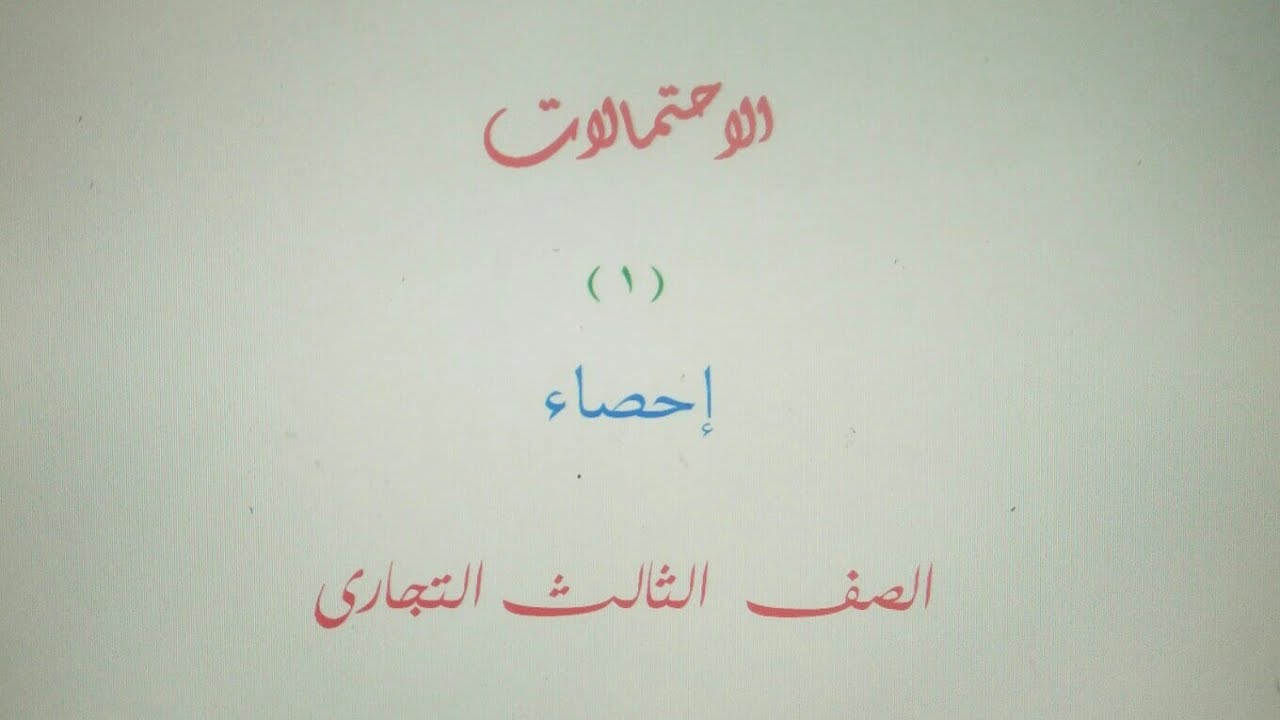 الاحتمالات
(١)
إحصاء
الصف الثالث التجارى